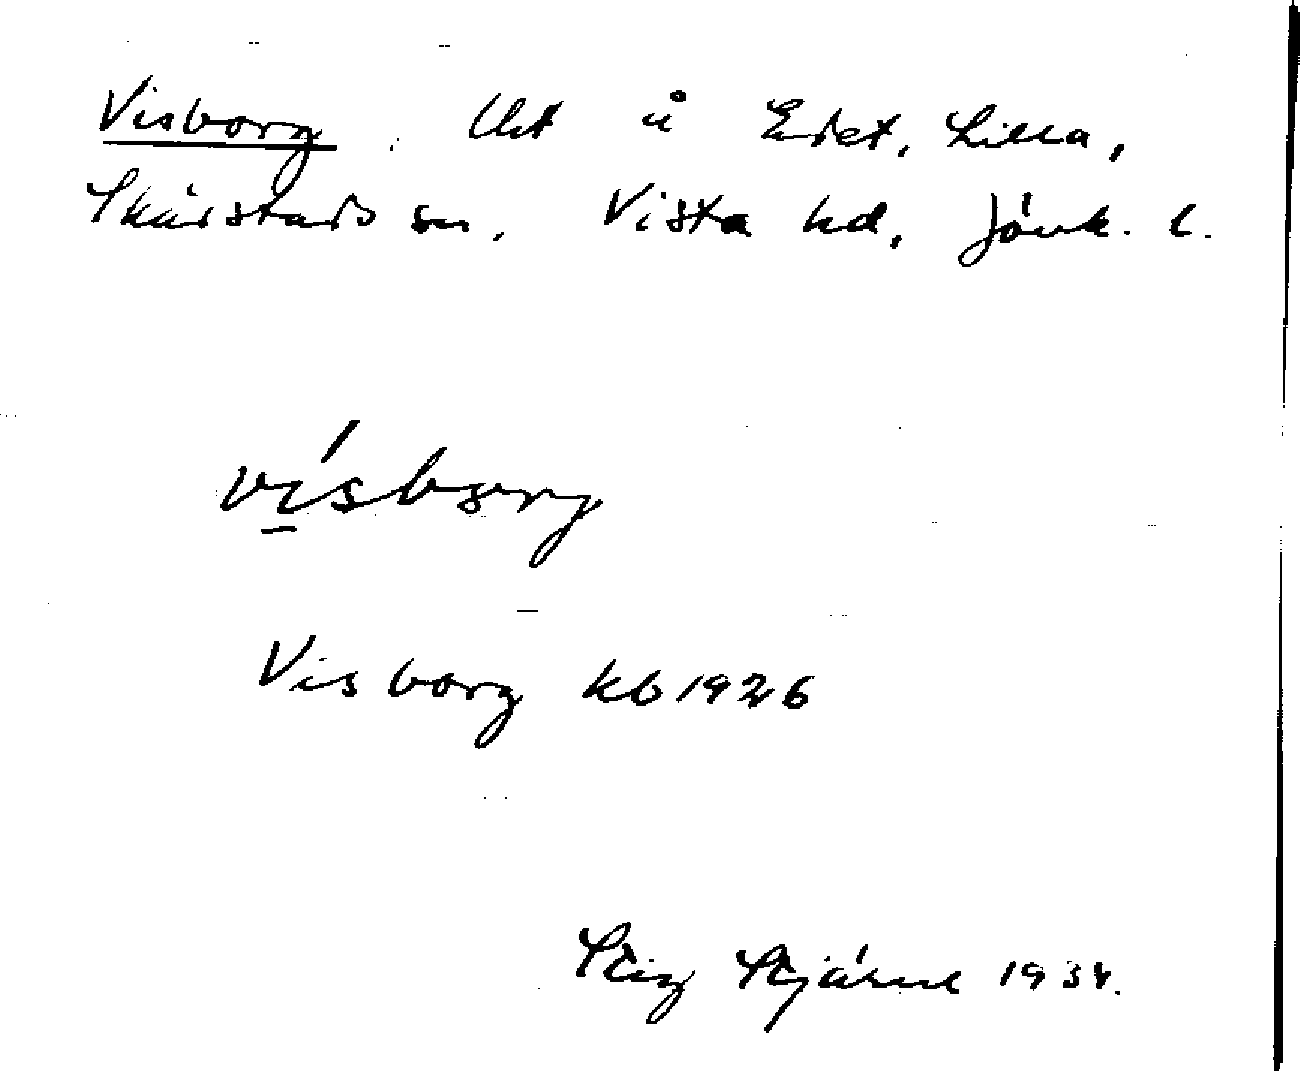 Visborg. Lht å Edet, Lilla,
Skärstads sn, Vista hd, Jönk. l.
vísborg
Visborg kb 1926
Stig Stjárne 1934.